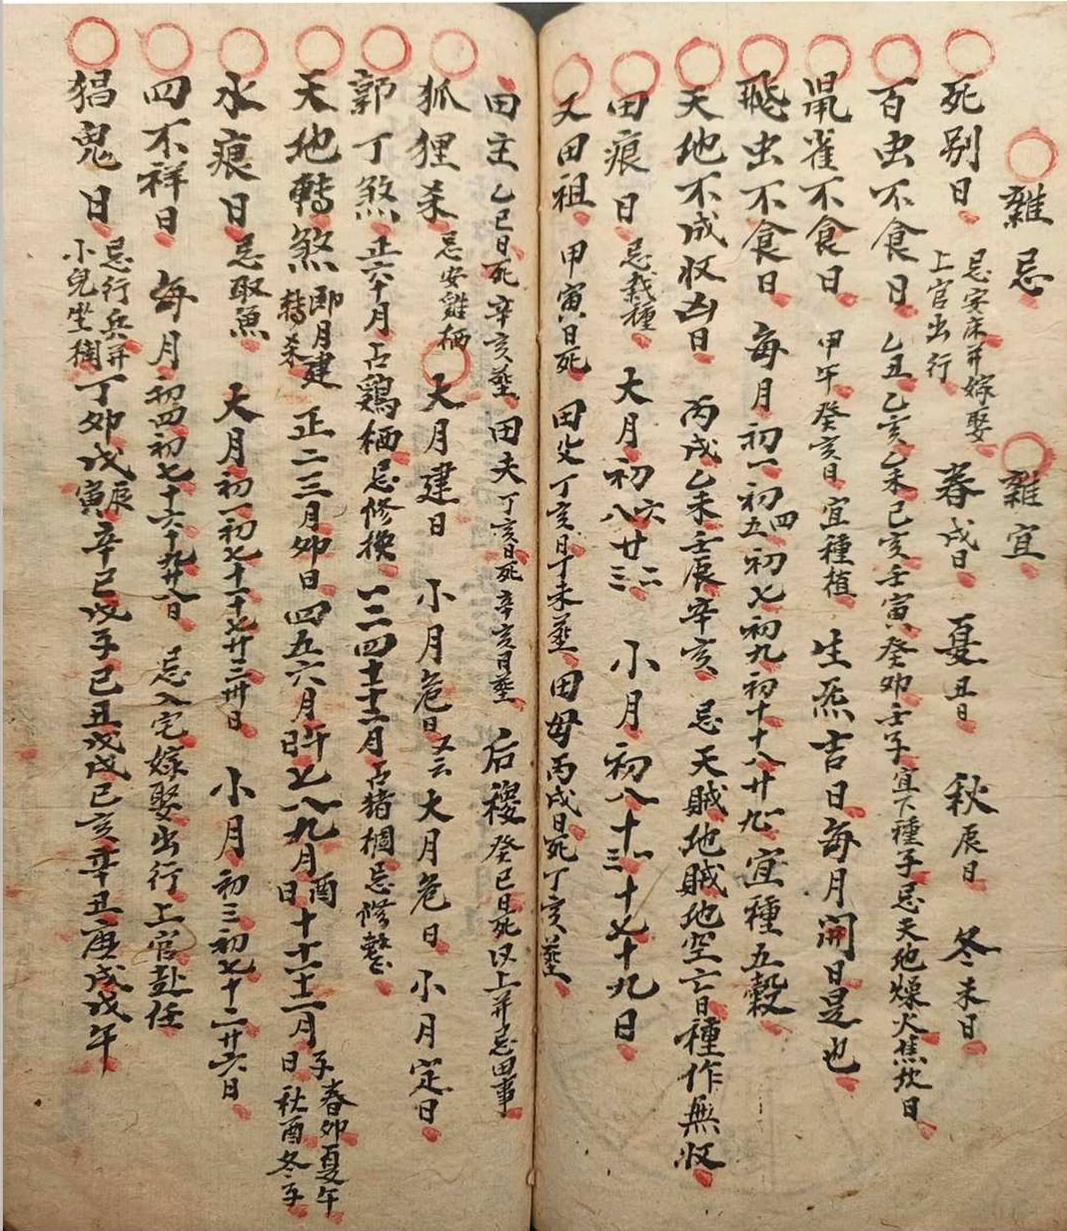 雜忌　雜宜
死別日　忌安床并嫁娶上官出行　春戌日　夏丑日　秋辰日　冬未日
百虫不食日　乙丑乙亥乙未己亥壬寅癸卯壬子宜下種子忌天地燥火焦坎日
鼠雀不食日　甲午癸亥日　宜種植　生炁吉日每月開日是也
飛虫不食日　每月初一初四五初七初九初十十八廿九　宜種五穀
天地不成収凶日　丙戌乙未壬辰辛亥　忌天賊地賊地空亡日種作無収
田痕日　忌栽種　大月初六八廿二三　小月初八十一三十七十九日
又田祖　甲寅日死　田父丁亥日丁未塟　田母丙戌日死丁亥塟
田主乙巳日死辛亥塟　田夫丁亥日死辛亥日塟　后稷癸巳日死以上并忌田事
狐狸杀　忌安雞栖　大月建日　小月危日又云大月危日　小月定日
郭丁煞　正六十月占鷄栖忌修換　一二四十十二月占猪椆忌修整
天地轉煞　即月建轉杀　正二三月卯日　四五六月午日　七八九月酉日　十十一十二月子日　春卯夏午秋酉冬子
水痕日　忌取魚　大月初一初七十一十七廿三卅日　小月初三初七十二廿六日
四不祥日　每月初四初七十六十九廿八日　忌入宅嫁娶出行上官赴任
猖鬼日　忌行兵并小兒坐椆　丁卯戊辰寅辛巳戊子己丑戊戌己亥辛丑庚戌戊午